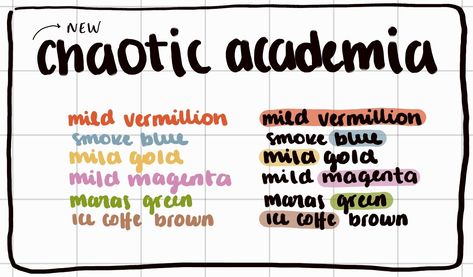 NEW
chaotic academia
mild vermillion
smoke blue
mild gold
mild magenta
maras green
ice coffe brown
mild vermillion
smoke blue
mild gold
mild magenta
maras green
ice coffe brown